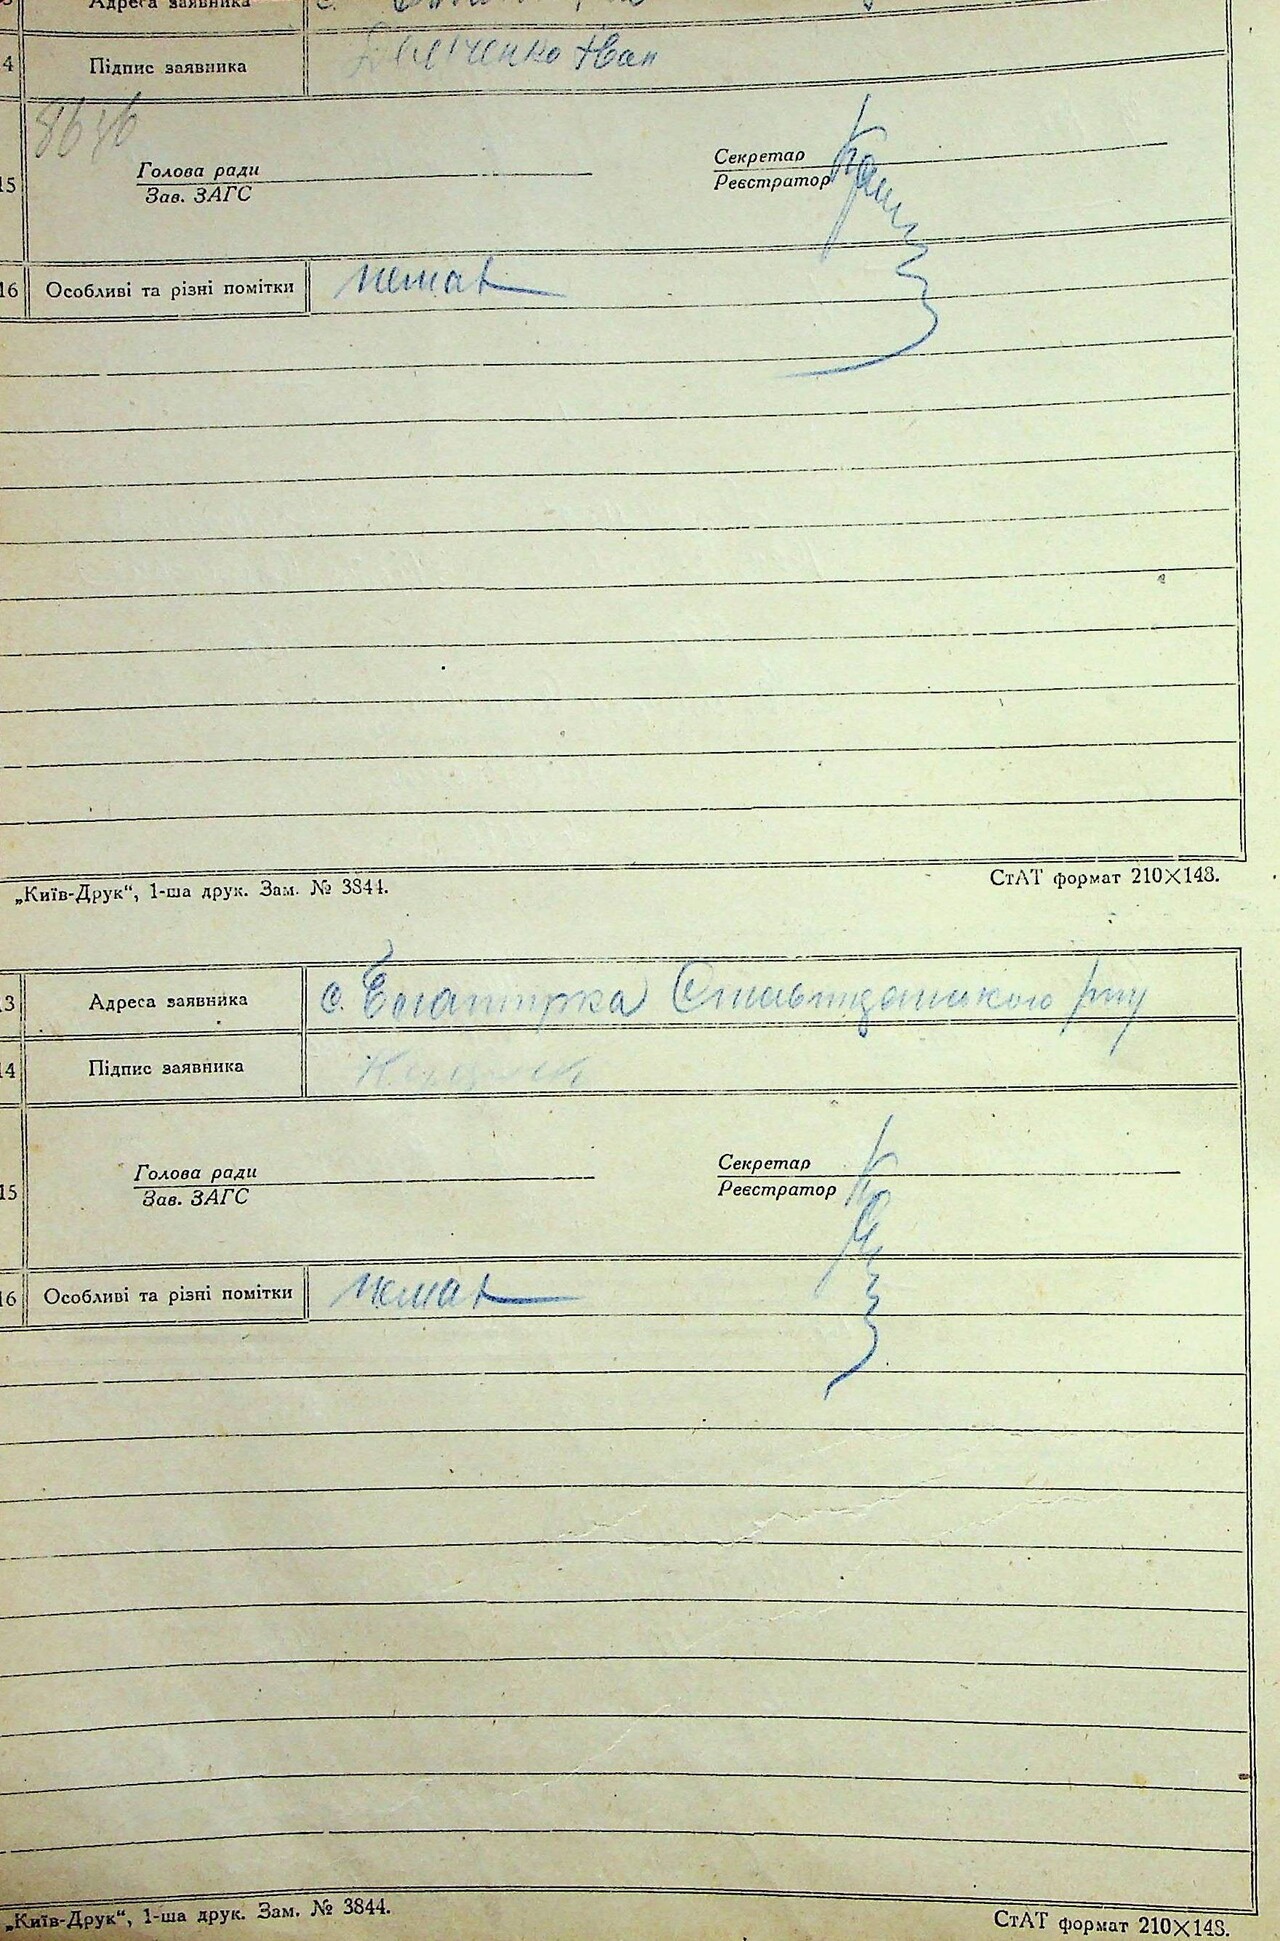 Адреса заявника с.
4 Підпис заявника Іван
15 Голова ради Секретар
Зав. ЗАГС Реєстратор
16 Особливі та різні помітки немає
„Київ-Друк“, 1-ша друк. Зам. № 3844. СтАТ формат 210×148.
13 Адреса заявника с. Богатирка Ставищанського р-ну
14 Підпис заявника
15 Голова ради Секретар
Зав. ЗАГС Реєстратор
16 Особливі та різні помітки немає
„Київ-Друк“, 1-ша друк. Зам. № 3844. СтАТ формат 210×148.